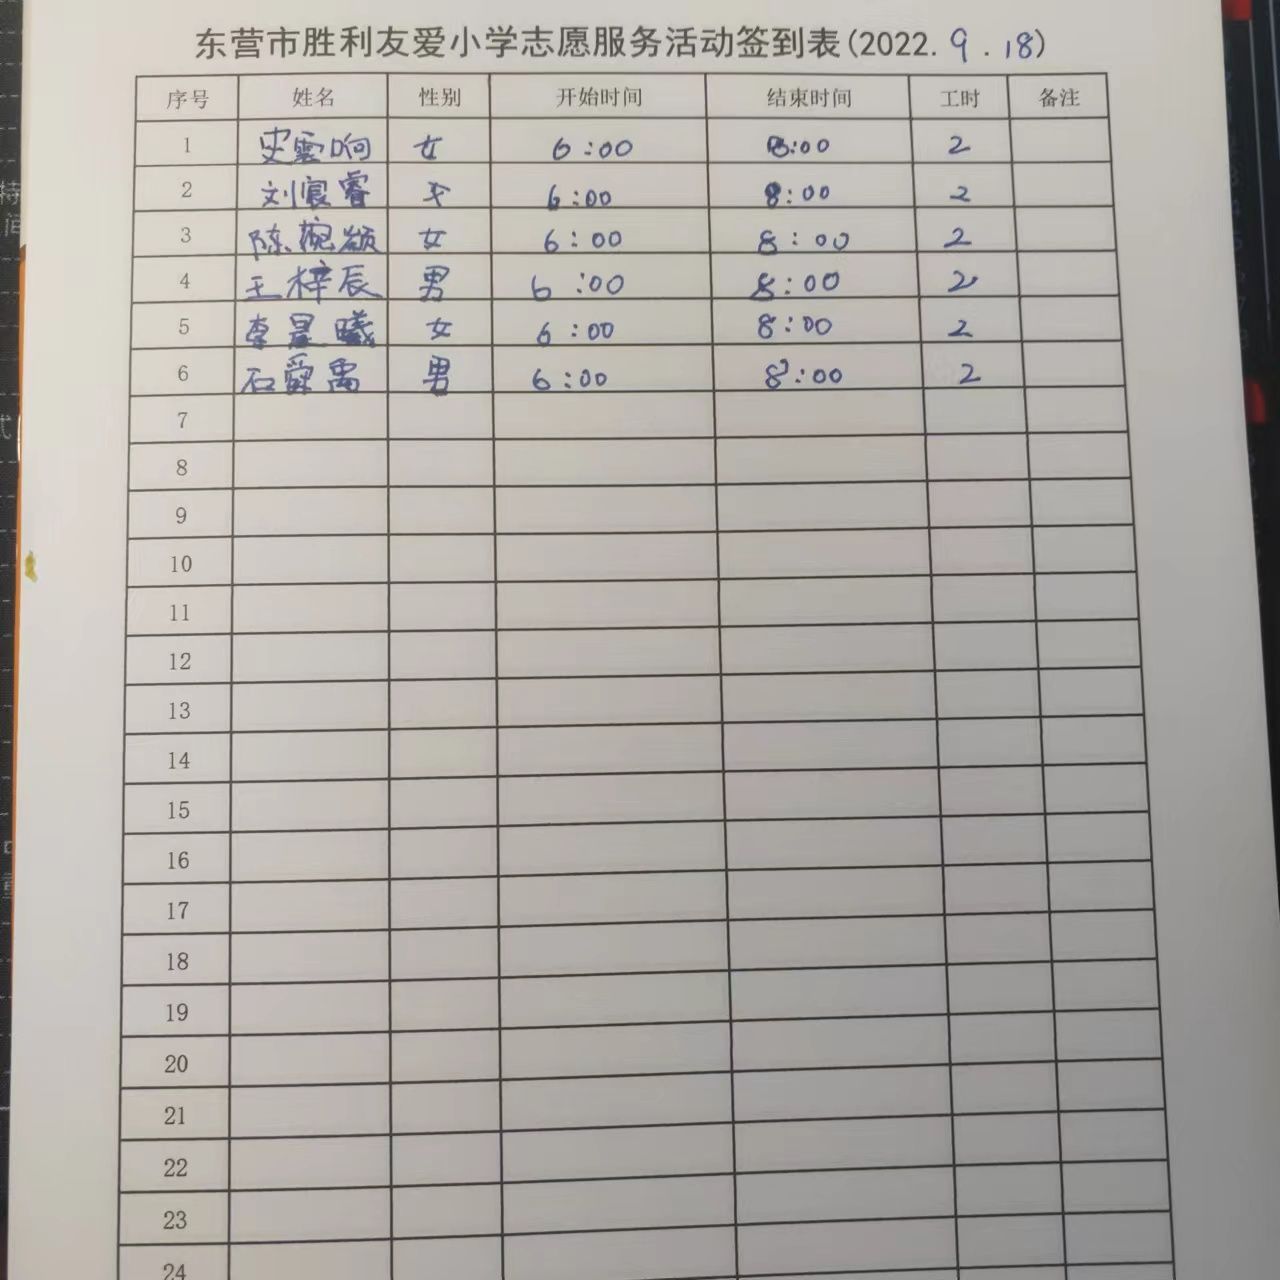 东营市胜利友爱小学志愿服务活动签到表(2022.9.18)
序号 姓名 性别 开始时间 结束时间 工时 备注
1 史雲响 女 6:00 8:00 2
2 刘宸睿 6:00 8:00 2
3 陈婉颍 女 6:00 8:00 2
4 王梓辰 男 6:00 8:00 2
5 李星曦 女 6:00 8:00 2
6 石舜禹 男 6:00 8:00 2
7
8
9
10
11
12
13
14
15
16
17
18
19
20
21
22
23
24